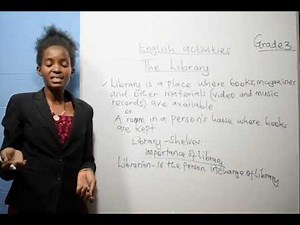 English activities
Grade 3
The Library
✓ Library is a place where books, magazines
and other materials (video and music
records) are available
or
A room in a person's house where books
are kept
Library - Shelves
Importance of library
Librarian - Is the person incharge of library